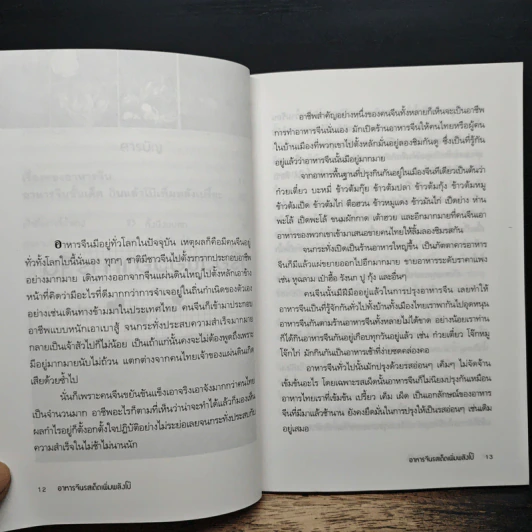 สารบัญ
อาหารจีนมีอยู่ทั่วโลกในปัจจุบัน เหตุผลก็คือมีคนจีนอยู่
ทั่วทั้งโลกใบนี้นั่นเอง ทุกๆ ชาติมีชาวจีนไปตั้งรกรากประกอบอาชีพ
อย่างมากมาย เดินทางออกจากจีนแผ่นดินใหญ่ไปตั้งหลักเอาข้าง
หน้าที่คิดว่ามีอะไรที่ดีมากกว่าการจำเจอยู่ในถิ่นกำเนิดของตัวเอง
อย่างเช่นเดินทางข้ามมาในประเทศไทย คนจีนก็เข้ามาประกอบ
อาชีพแบบหนักเอาเบาสู้ จนกระทั่งประสบความสำเร็จมากมาย
กลายเป็นเจ้าสัวไปก็ไม่น้อย เป็นเถ้าแก่นั้นคงจะไม่ต้องพูดถึงเพราะ
มีอยู่มากมายนับไม่ถ้วน แตกต่างจากคนไทยเจ้าของแผ่นดินเกิด
เสียด้วยซ้ำไป
นั่นก็เพราะคนจีนขยันขันแข็งเอาจริงเอาจังมากกว่าคนไทย
เป็นจำนวนมาก อาชีพอะไรก็ตามที่เห็นว่าน่าจะทำได้แล้วก็มองเห็น
ผลกำไรอยู่ก็ตั้งอกตั้งใจปฏิบัติอย่างไม่ระย่อเลยจนกระทั่งประสบกับ
ความสำเร็จในไม่ช้าไม่นานนัก
12 อาหารจีนรสเด็ดเพิ่มพลังโป๊
อาชีพสำคัญอย่างหนึ่งของคนจีนทั้งหลายก็เห็นจะเป็นอาชีพ
การทำอาหารจีนนั่นเอง มักเปิดร้านอาหารจีนให้คนไทยหรือผู้คน
ในบ้านเมืองที่พวกเขาไปตั้งหลักมั่นอยู่ลองชิมกันดู ซึ่งเป็นที่รู้กัน
อยู่แล้วว่าอาหารจีนนั้นมีอยู่มากมาย
จากอาหารพื้นฐานที่ปรุงกินกันอยู่ในเมืองจีนทีเดียวเป็นต้นว่า
ก๋วยเตี๋ยว บะหมี่ ข้าวต้มกุ๊ย ข้าวต้มปลา ข้าวต้มกุ้ง ข้าวต้มหมู
ข้าวต้มเป็ด ข้าวต้มไก่ ติ่มซำ ข้าวหมูแดง ข้าวมันไก่ เป็ดย่าง ห่าน
พะโล้ เป็ดพะโล้ ขนมผักกาด เต้าฮวย และอีกมากมายที่คนจีนเอา
อาหารของพวกเขาเข้ามาเสนอขายคนไทยให้ลิ้มลองชิมรสกัน
จนกระทั่งเปิดเป็นร้านอาหารใหญ่ขึ้น เป็นภัตตาคารอาหาร
จีนก็มีแล้วแผ่ขยายออกไปอีกมากมาย ขายอาหารระดับราคาแพง
เช่น หูฉลาม เป๋าฮื้อ รังนก ปู กุ้ง และอื่นๆ
คนจีนนั้นมีฝีมืออยู่แล้วในการปรุงอาหารจีน เลยทำให้
อาหารจีนเป็นที่รู้จักกันทั่วไปทั้งบ้านทั้งเมืองไทยเราพากันไปอุดหนุน
อาหารจีนกันตามร้านอาหารจีนทั้งหลายไม่ได้ขาด อย่างน้อยเราท่าน
ก็ได้กินอาหารจีนกันอยู่เกือบทุกวันอยู่แล้ว เช่น ก๋วยเตี๋ยว โจ๊กหมู
โจ๊กไก่ มักกินกันเป็นอาหารเช้าที่ง่ายซดคล่องคอ
อาหารจีนทั่วไปนั้นมักปรุงด้วยรสอ่อนๆ เค็มๆ ไม่จัดจ้าน
เข้มข้นอะไร โดยเฉพาะรสเผ็ดนั้นอาหารจีนก็ไม่นิยมปรุงกันเหมือน
อาหารไทยเราที่เข้มข้น เปรี้ยว เค็ม เผ็ด เป็นเอกลักษณ์ของอาหาร
จีนที่มีมาแล้วช้านาน ยังคงยึดมั่นในการปรุงให้เป็นรสอ่อนๆ เช่นเดิม
อยู่เสมอ
อาหารจีนรสเด็ดเพิ่มพลังโป๊ 13